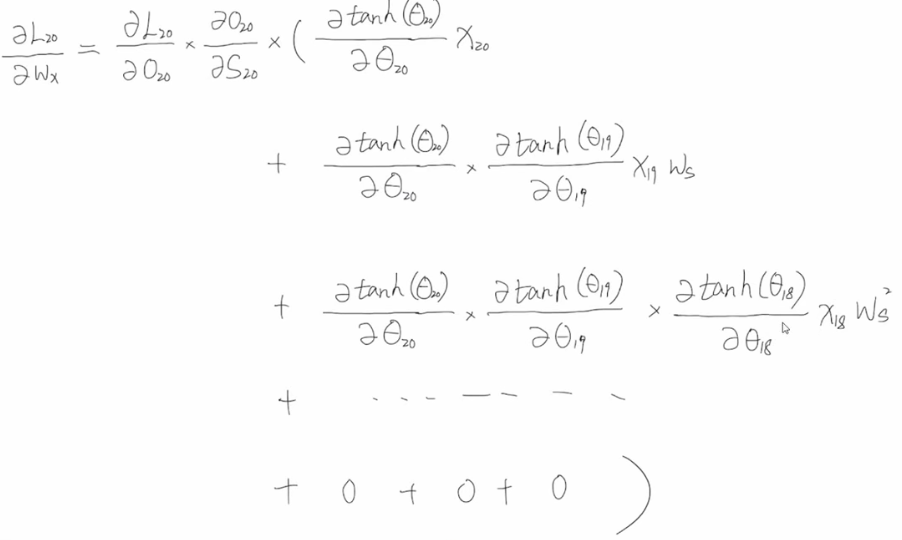 ∂L₂₀/∂Wₓ = ∂L₂₀/∂O₂₀ × ∂O₂₀/∂S₂₀ × ( ∂tanh(θ₂₀)/∂θ₂₀ X₂₀
+ ∂tanh(θ₂₀)/∂θ₂₀ × ∂tanh(θ₁₉)/∂θ₁₉ X₁₉ Wₛ
+ ∂tanh(θ₂₀)/∂θ₂₀ × ∂tanh(θ₁₉)/∂θ₁₉ × ∂tanh(θ₁₈)/∂θ₁₈ X₁₈ Wₛ²
+ ... — — — —
+ 0 + 0 + 0 )